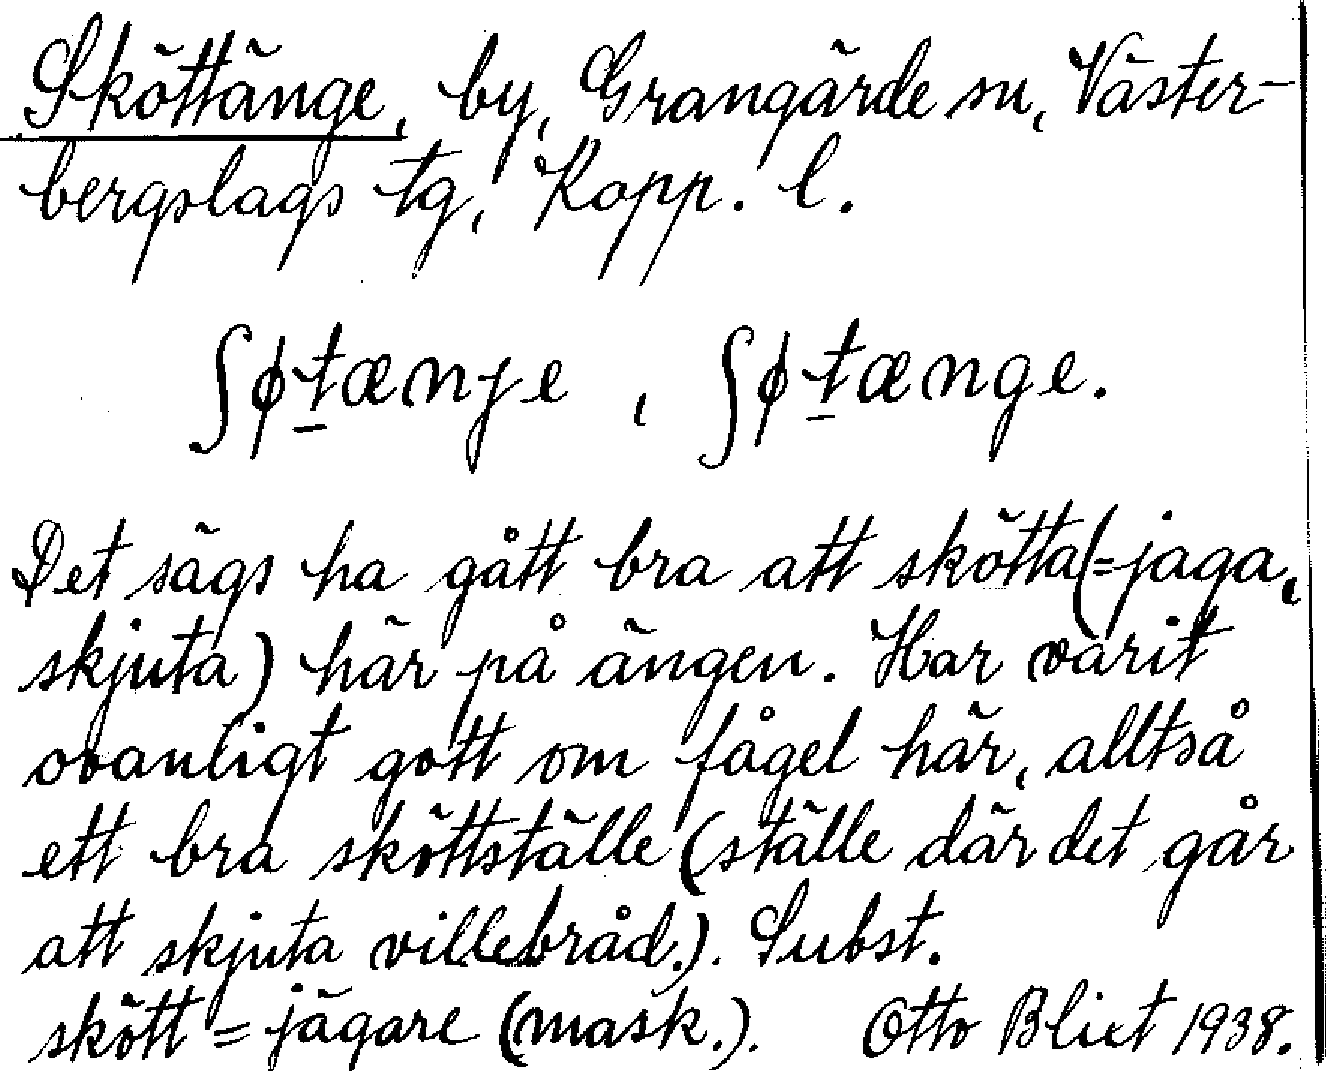 Sköttänge, by, Grangärde sn, Väster-
bergslags tg, Kopp. l.
ʃϕṯænje, ʃϕṯænge.
Det sägs ha gått bra att skötta (=jaga,
skjuta) här på ängen. Har varit
ovanligt gott om fågel här, alltså
ett bra sköttställe (ställe där det går
att skjuta villebråd.). Subst.
skött = jägare (mask.). Otto Blixt 1938.